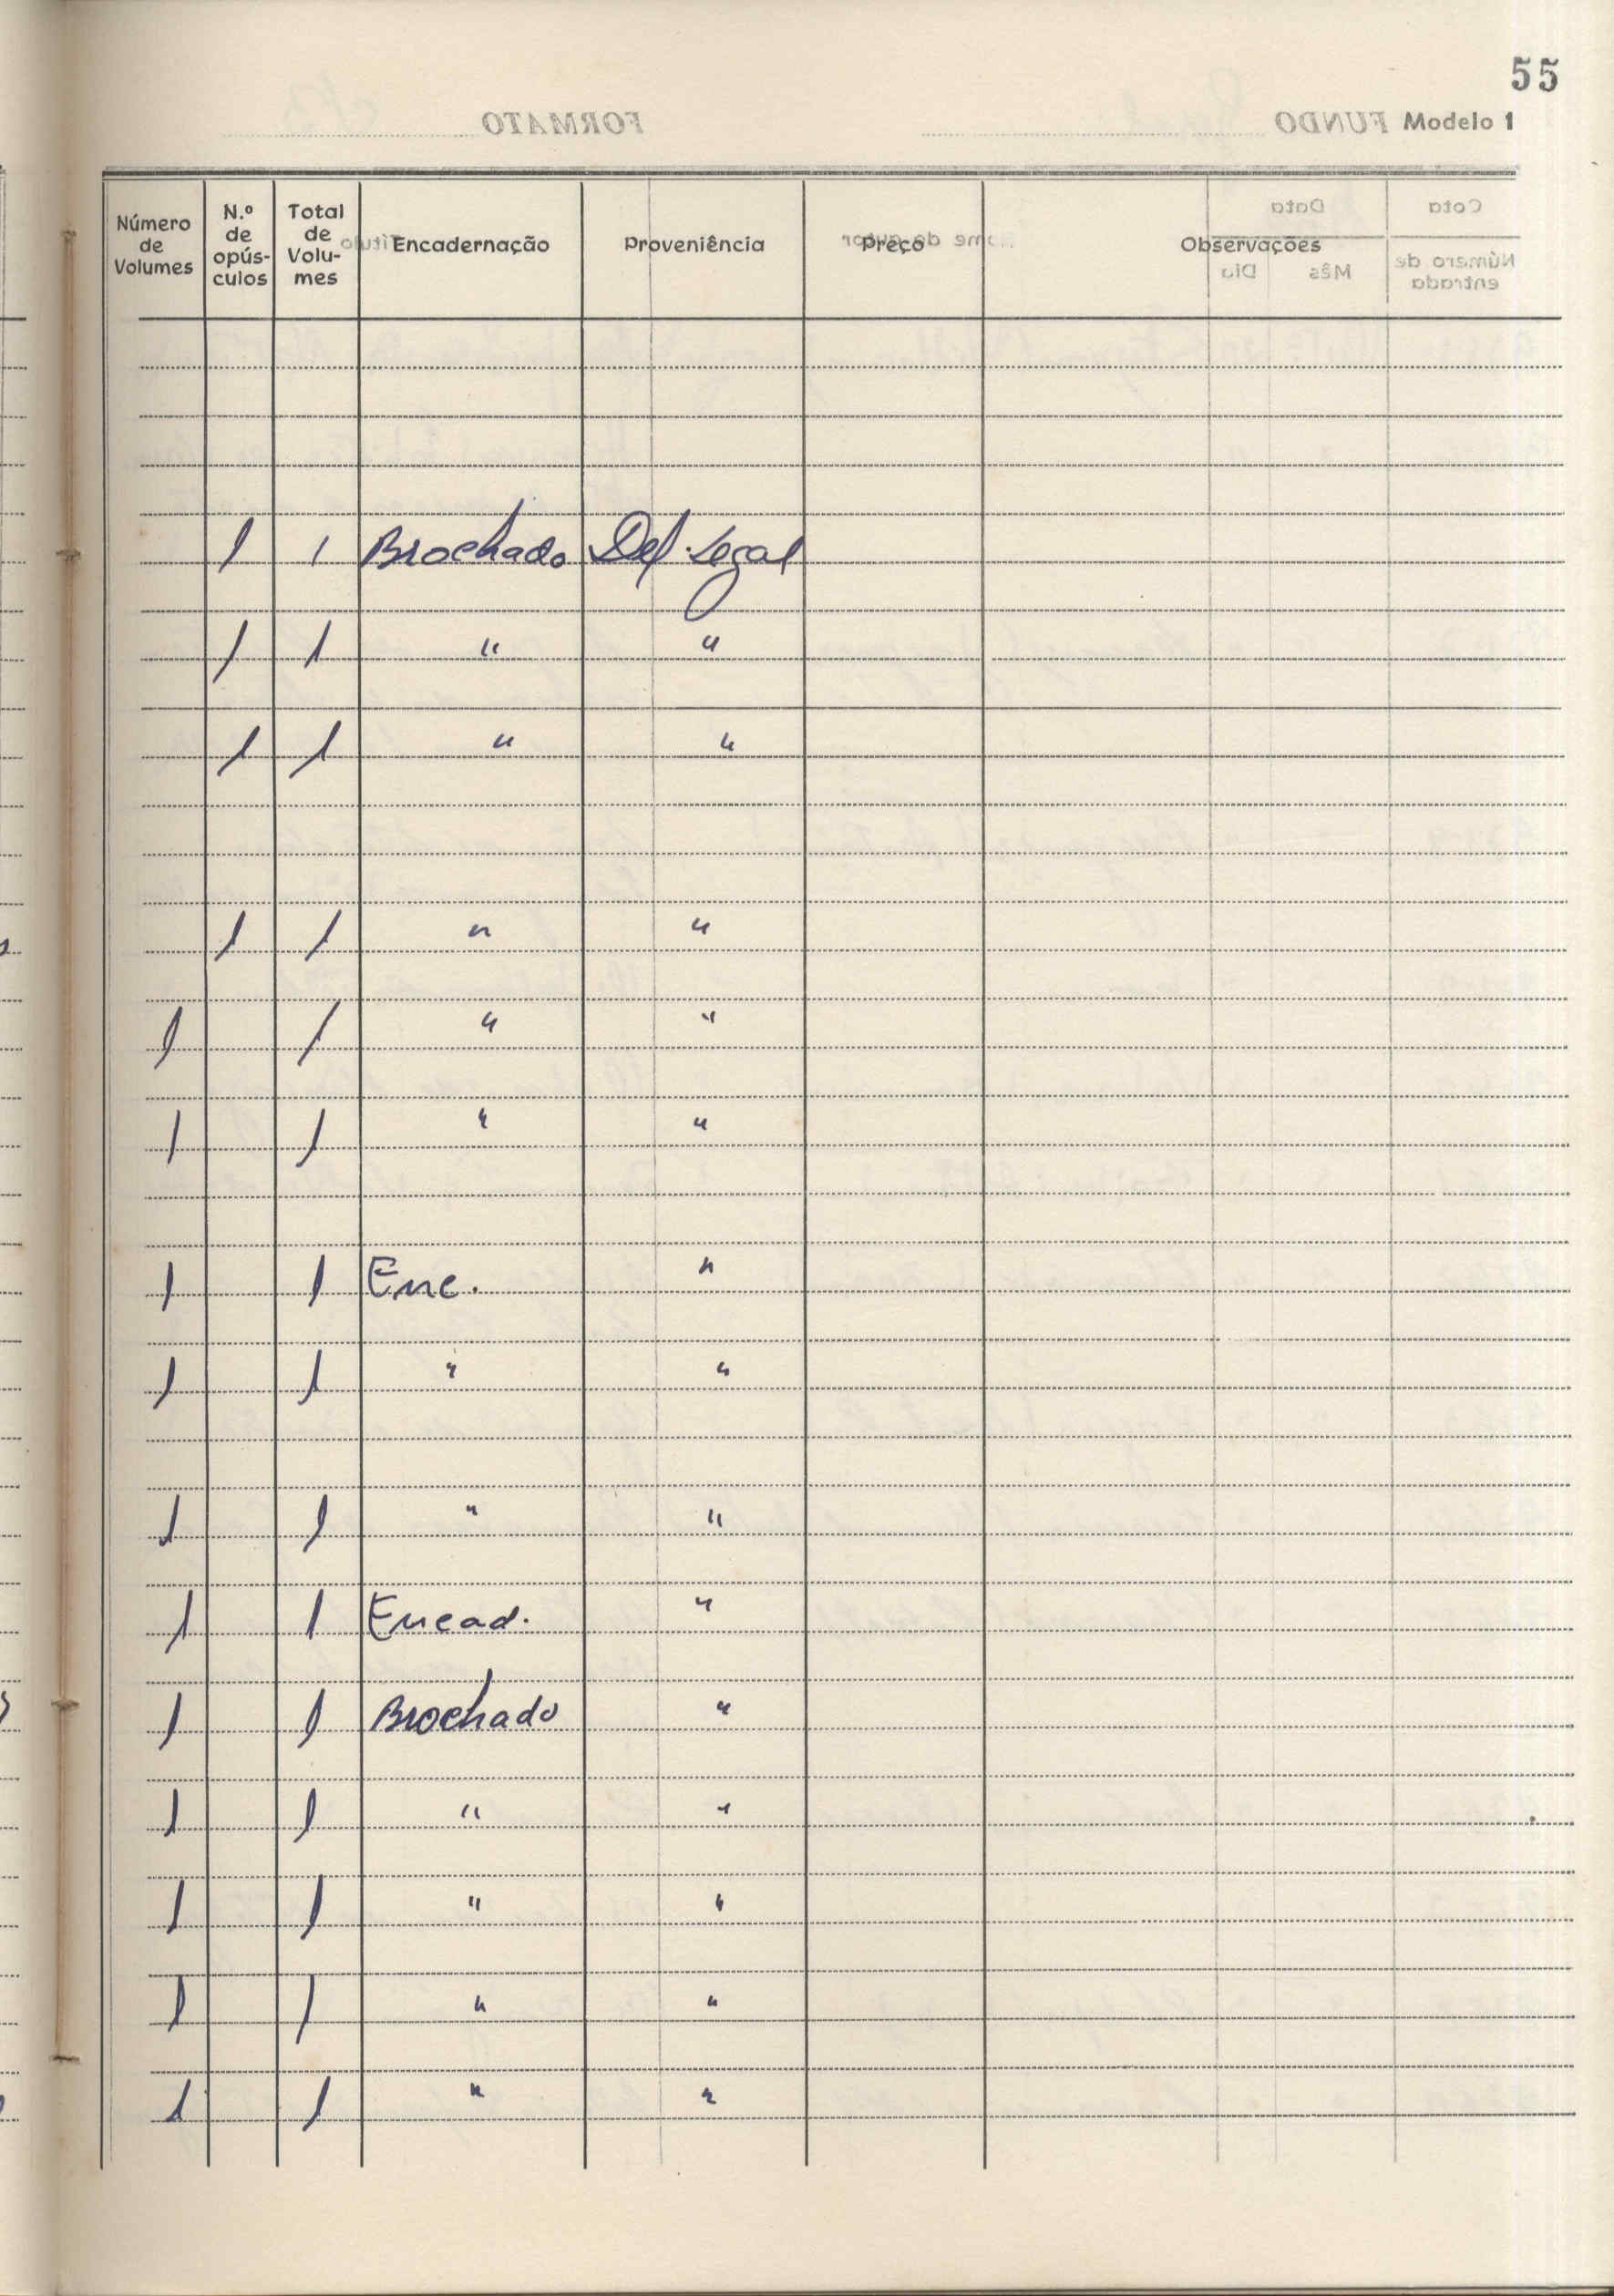 55
Modelo 1
Número de Volumes | N.º de opús-culos | Total de Volu-mes | Encadernação | Proveniência | Preço | Observações
1 1 Brochado Dep. Legal
1 1 " "
1 1 " "
1 1 " "
1 1 " "
1 1 " "
1 1 Enc. "
1 1 " "
1 1 " "
1 1 Encad. "
1 1 Brochado "
1 1 " "
1 1 " "
1 1 " "
1 1 " "